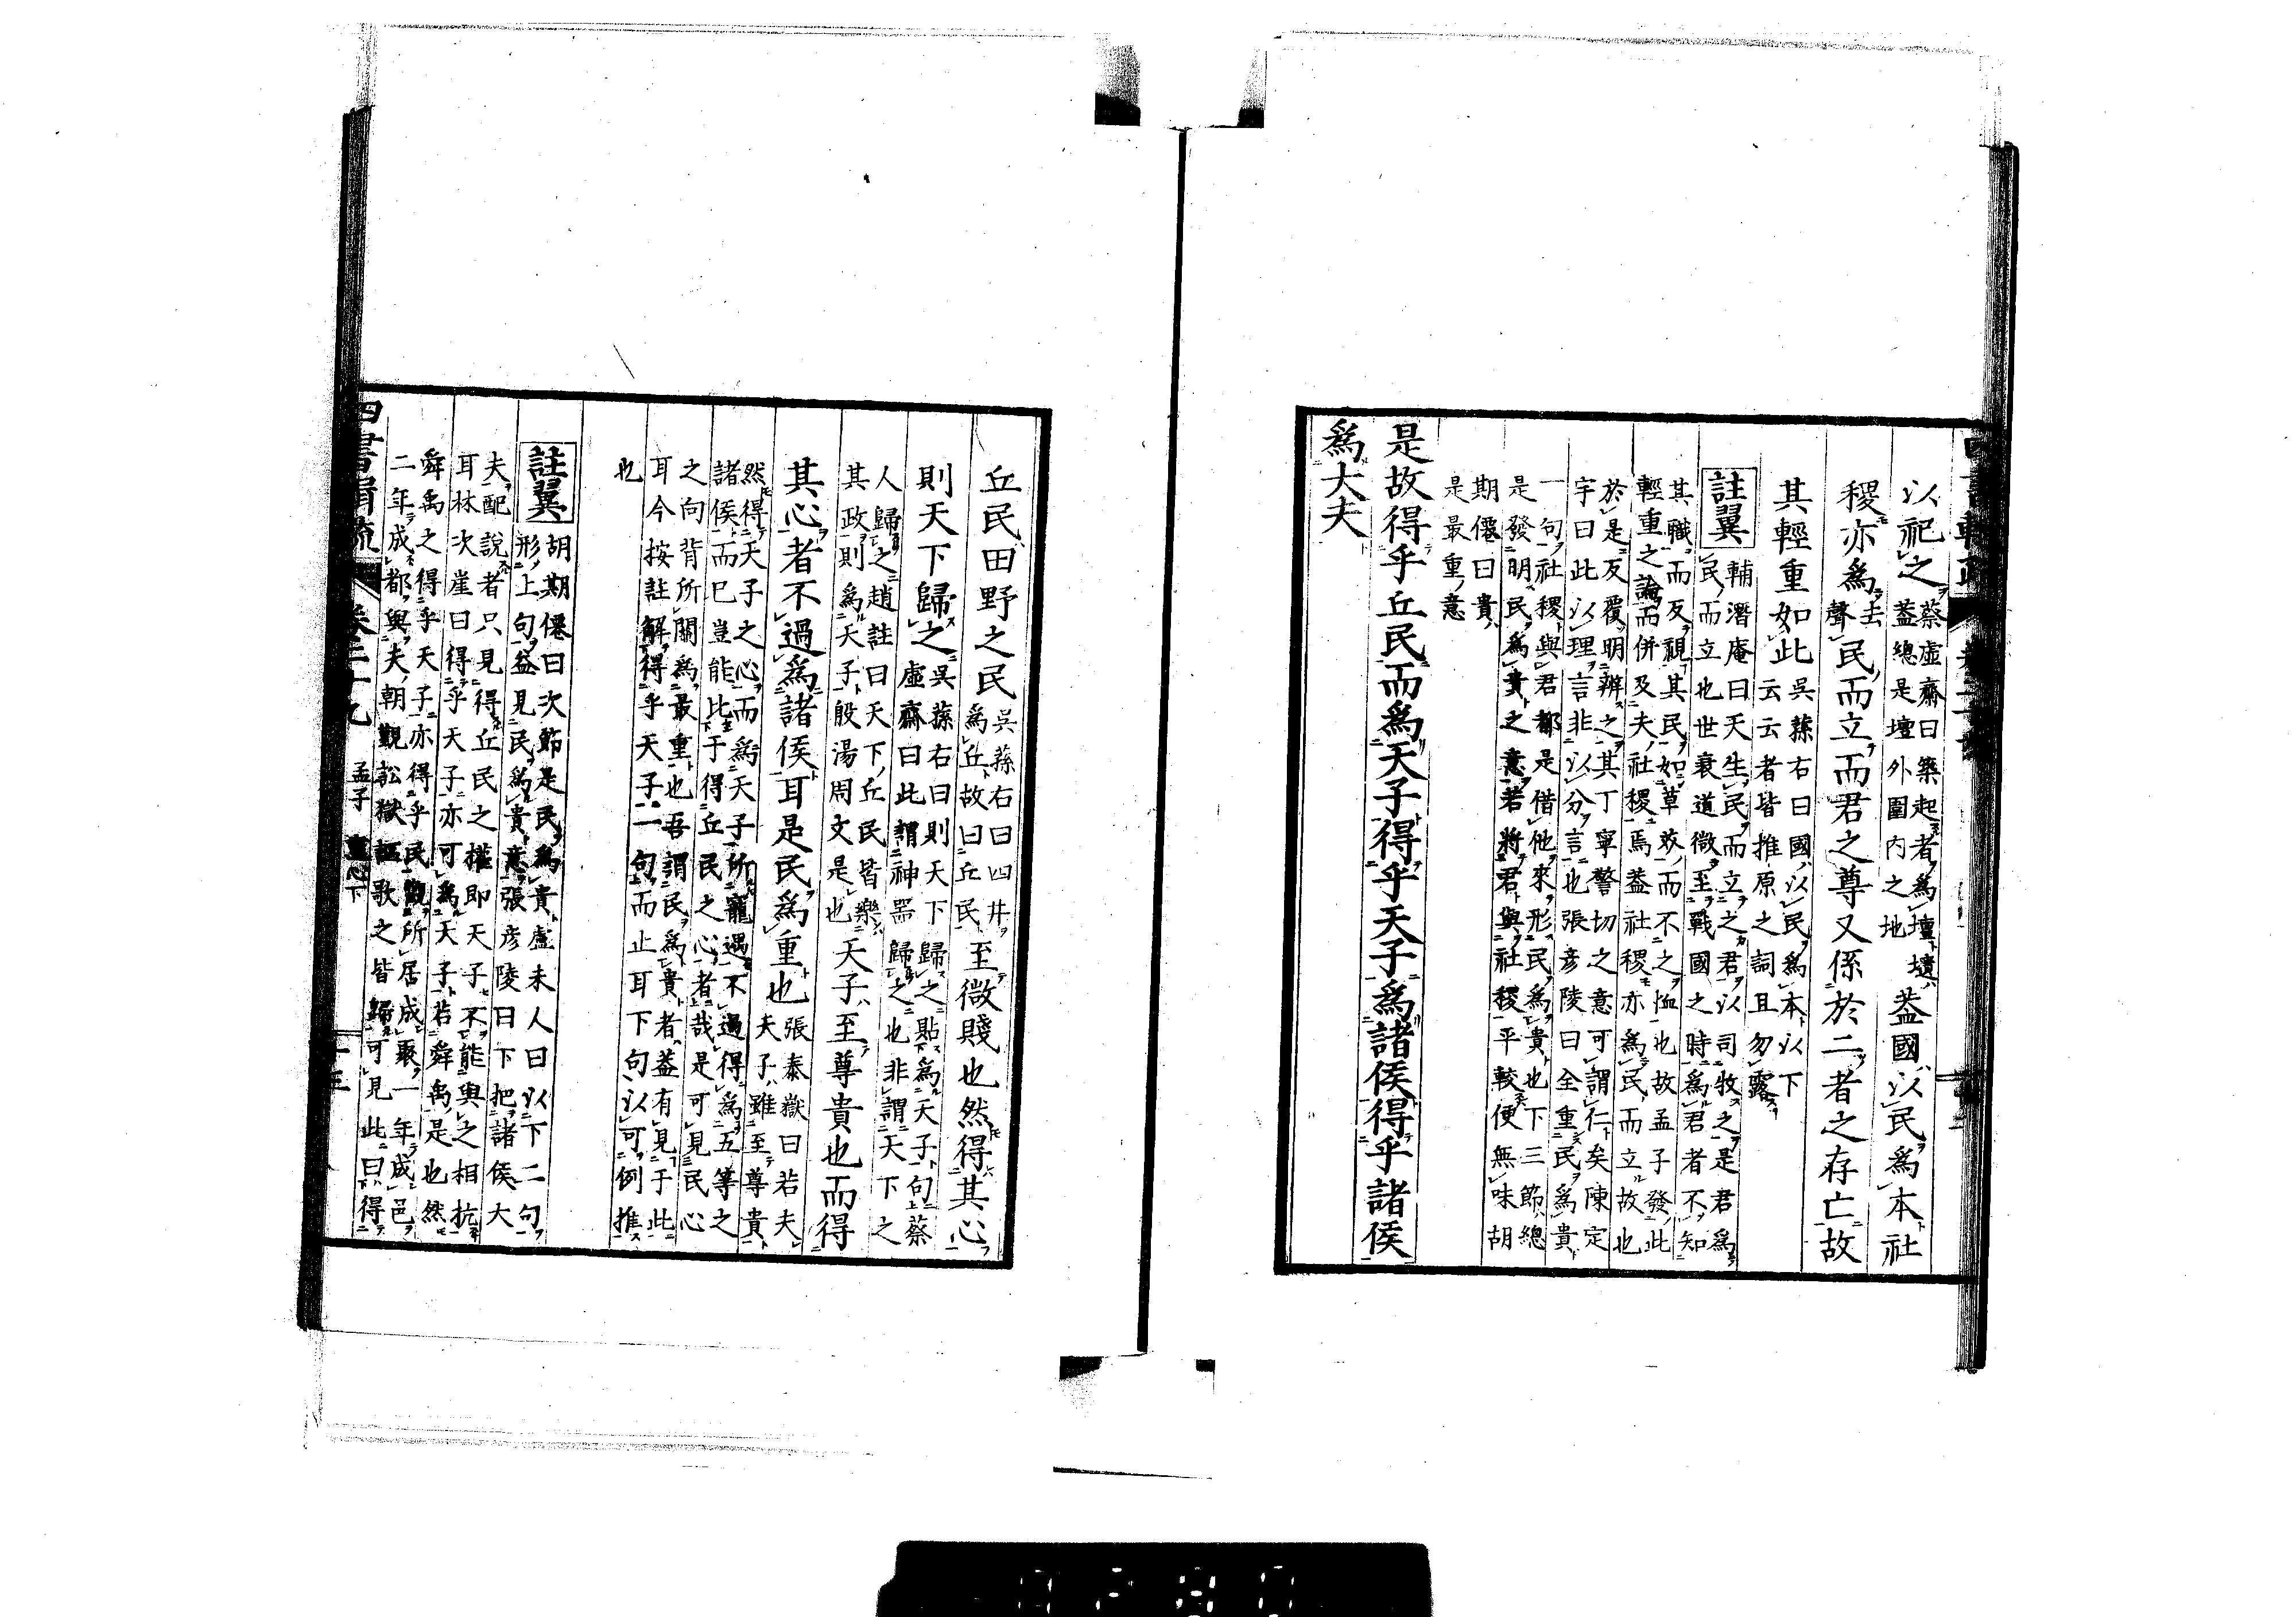 以祀之蔡虛齋曰築起者爲壇壝
蓋總是壇外圍内之地
蓋國以民爲本社
稷亦爲去聲民而立而君之尊又係於二者之存亡故
其輕重如此吳蓀右曰國以民爲本以下
云云者皆推原之詞且勿露
註翼
輔潛庵曰天生民而立之君以司牧之是君爲
民而立也世衰道微至戰國之時爲君者不知
其職而反視其民如草芥而不之恤也故孟子發此
輕重之論而併及夫社稷焉蓋社稷亦爲民而立故也
於是反覆明辨之其丁寧警切之意可謂仁矣陳定
宇曰此以理言非以分言也張彦陵曰全重民爲貴
一句社稷與君都是借他來形民爲貴也下三節總
是發明民爲貴之意若將君與社稷平較便無味胡
期僊曰貴
是最重意
是故得乎丘民而爲天子得乎天子爲諸侯得乎諸侯
爲大夫
丘民田野之民吳蓀右曰四井
爲丘故曰丘民
至微賤也然得其心
則天下歸之吳蓀右曰則天下歸之貼爲天子句蔡
虛齋曰此謂神器歸之也非謂天下之
人歸之趙註曰天下丘民皆樂
其政則爲天子殷湯周文是也
天子至尊貴也而得
其心者不過爲諸侯耳是民爲重也張泰嶽曰若夫
夫子雖至尊貴
然得天子之心而爲天子所寵遇不過得爲五等之
諸侯而已豈能比于得丘民之心者哉是可見民心
之向背所關爲最重也吾謂民爲貴者蓋有見于此
耳今按註解得乎天子一句而止耳下句以可例推
也
註翼
胡期僊曰次節是民爲貴盧未人曰以下二句
形上句益見民爲貴意張彦陵曰下把諸侯大
夫配說者只見得丘民之權即天子不能與之相抗
耳林次崖曰得乎天子亦可爲天子若舜禹是也然
舜禹之得乎天子亦得乎民觀所居成聚一年成邑
二年成都與夫朝覲訟獄謳歌之皆歸可見此曰得
卷三十九 孟子